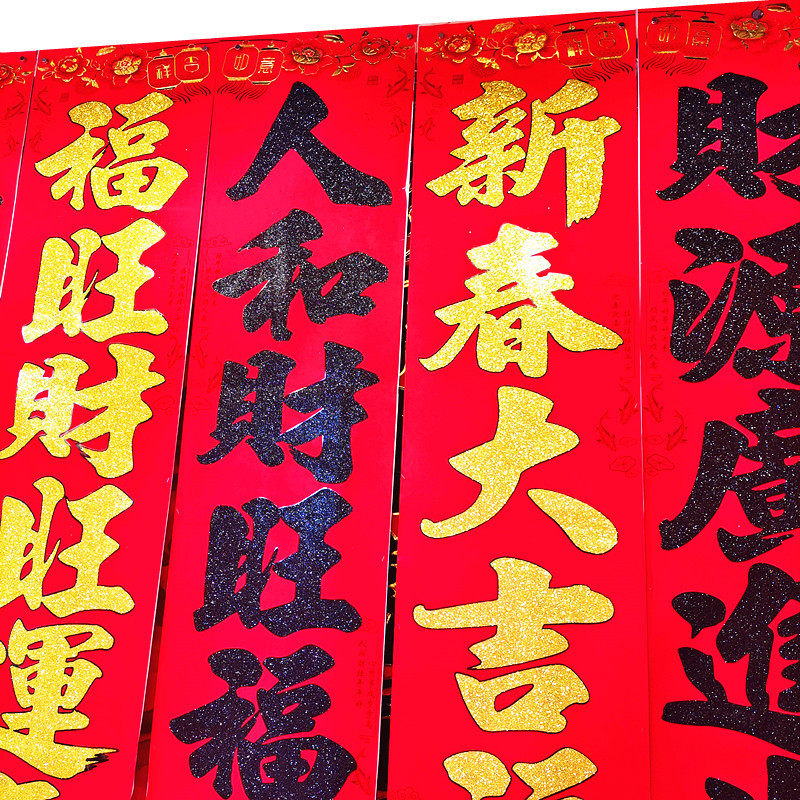 福旺財旺運
人和財旺福
新春大吉
財源廣進
吉祥
如意
吉祥
如意